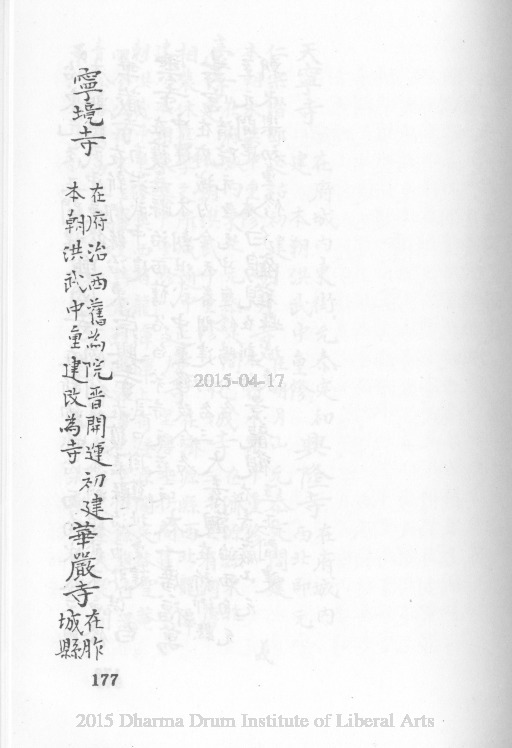 寧境寺
在府治西舊為院晉開運初建
本朝洪武中重建改為寺
華嚴寺
在胙
城縣
2015-04-17
177
2015 Dharma Drum Institute of Liberal Arts